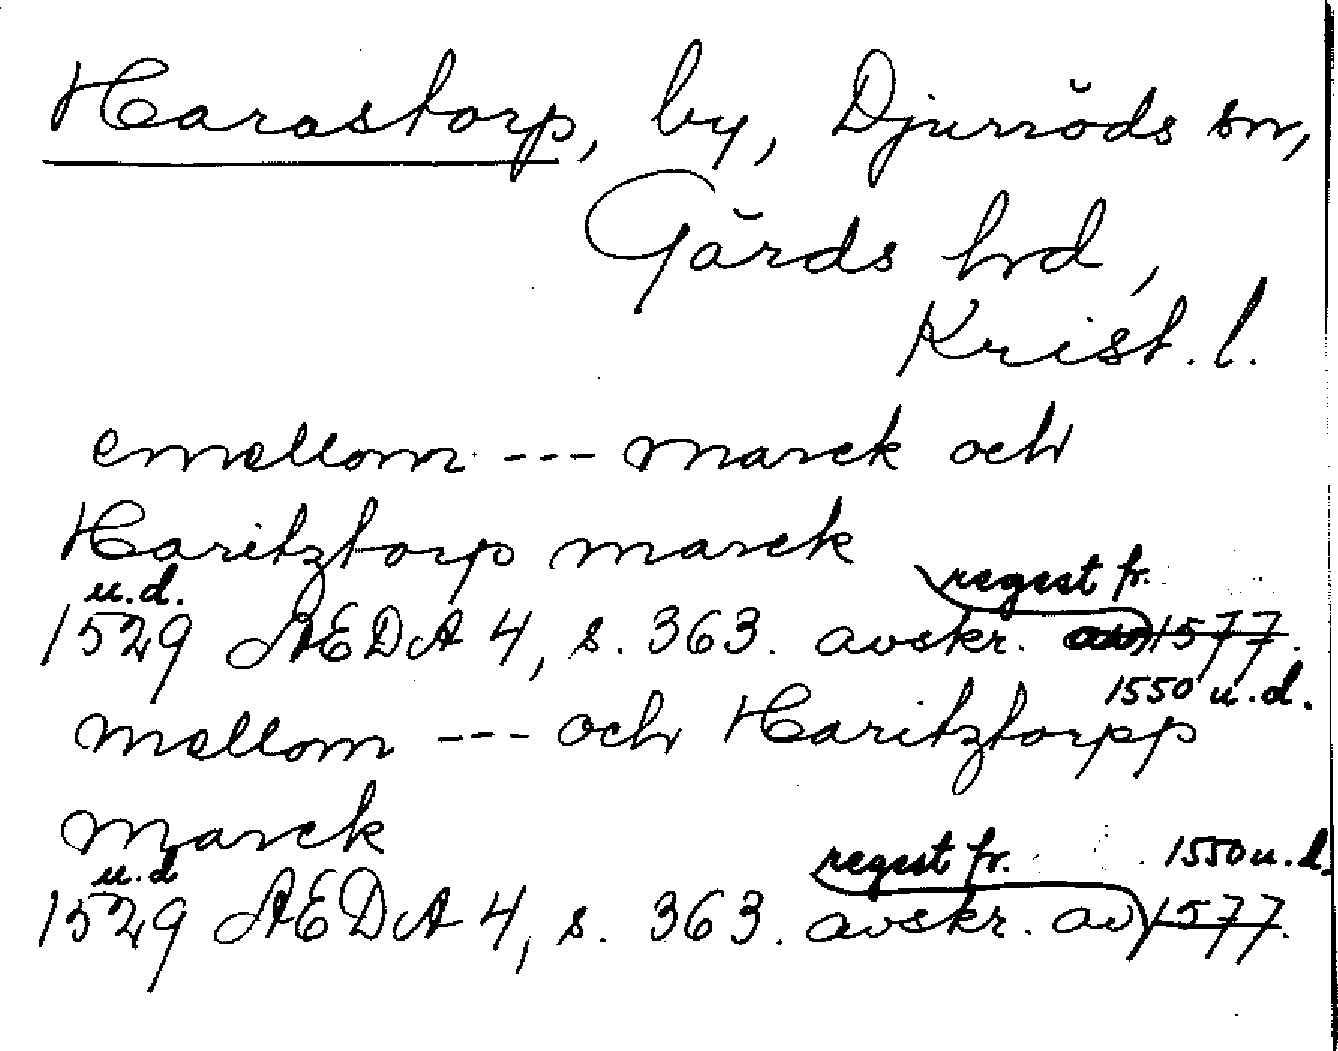 Harastorp, by, Djurröds sn,
Gärds hd,
Krist. l.
emellom --- marck och
Haritztorp marck
u.d. regest fr.
1529 ÆDA 4, s. 363. avskr. av 1577.
1550 u.d.
mellom --- och Haritztorpp
marck
u.d regest fr. 1550 u.d.
1529 ÆDA 4, s. 363. avskr. av 1577.